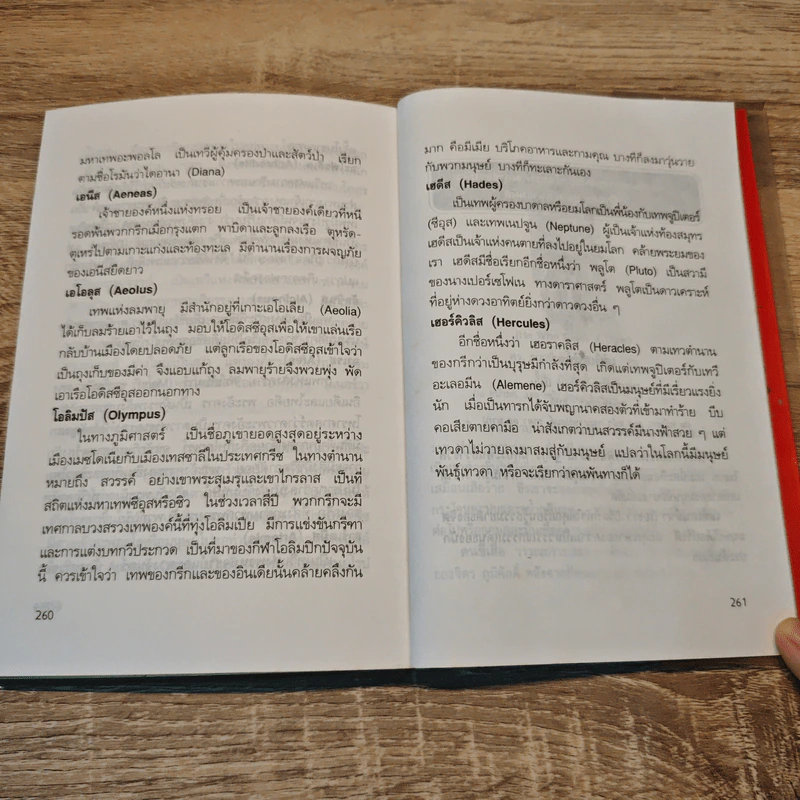 มหาเทพอะพอลโล เป็นเทวีผู้คุ้มครองป่าและสัตว์ป่า เรียก
ตามชื่อโรมันว่าไดอานา (Diana)
เอนีส (Aeneas)
เจ้าชายองค์หนึ่งแห่งทรอย เป็นเจ้าชายองค์เดียวที่หนี
รอดพ้นพวกกรีกเมื่อกรุงแตก พาบิดาและลูกลงเรือ ตุหรัด-
ตุเหร่ไปตามเกาะแก่งและท้องทะเล มีตำนานเรื่องการผจญภัย
ของเอนีสยืดยาว
เอโอลุส (Aeolus)
เทพแห่งลมพายุ มีสำนักอยู่ที่เกาะเอโอเลีย (Aeolia)
ได้เก็บลมร้ายเอาไว้ในถุง มอบให้โอดิสซีอุสเพื่อให้เขาแล่นเรือ
กลับบ้านเมืองโดยปลอดภัย แต่ลูกเรือของโอดิสซีอุสเข้าใจว่า
เป็นถุงเก็บของมีค่า จึงแอบแก้ถุง ลมพายุร้ายจึงพวยพุ่ง พัด
เอาเรือโอดิสซีอุสออกนอกทาง
โอลิมปัส (Olympus)
ในทางภูมิศาสตร์ เป็นชื่อภูเขายอดสูงสุดอยู่ระหว่าง
เมืองเมซโดเนียกับเมืองเทสซาลีในประเทศกรีซ ในทางตำนาน
หมายถึง สวรรค์ อย่างเขาพระสุเมรุและเขาไกรลาส เป็นที่
สถิตแห่งมหาเทพซีอุสหรือซิว ในช่วงเวลาสี่ปี พวกกรีกจะมี
เทศกาลบวงสรวงเทพองค์นี้ที่ทุ่งโอลิมเปีย มีการแข่งขันกรีฑา
และการแต่งบทกวีประกวด เป็นที่มาของกีฬาโอลิมปิกปัจจุบัน
นี้ ควรเข้าใจว่า เทพของกรีกและของอินเดียนั้นคล้ายคลึงกัน
260
มาก คือมีเมีย บริโภคอาหารและกามคุณ บางทีก็ลงมาวุ่นวาย
กับพวกมนุษย์ บางทีก็ทะเลาะกันเอง
เฮดีส (Hades)
เป็นเทพผู้ครองบาดาลหรือยมโลกเป็นพี่น้องกับเทพจูปิเตอร์
(ซีอุส) และเทพเนปจูน (Neptune) ผู้เป็นเจ้าแห่งท้องสมุทร
เฮดีสเป็นเจ้าแห่งคนตายที่ลงไปอยู่ในยมโลก คล้ายพระยมของ
เรา เฮดีสมีชื่อเรียกอีกชื่อหนึ่งว่า พลูโต (Pluto) เป็นสวามี
ของนางเปอร์เซโฟเน ทางดาราศาสตร์ พลูโตเป็นดาวเคราะห์
ที่อยู่ห่างดวงอาทิตย์ยิ่งกว่าดาวดวงอื่น ๆ
เฮอร์คิวลิส (Hercules)
อีกชื่อหนึ่งว่า เฮอราคลิส (Heracles) ตามเทวตำนาน
ของกรีกว่าเป็นบุรุษมีกำลังที่สุด เกิดแต่เทพจูปิเตอร์กับเทวี
อะเลอมีน (Alemene) เฮอร์คิวลิสเป็นมนุษย์ที่มีเรี่ยวแรงยิ่ง
นัก เมื่อเป็นทารกได้จับพญานาคสองตัวที่เข้ามาทำร้าย บีบ
คอเสียตายคามือ น่าสังเกตว่าบนสวรรค์มีนางฟ้าสวย ๆ แต่
เทวดาไม่วายลงมาสมสู่กับมนุษย์ แปลว่าในโลกนี้มีมนุษย์
พันธุ์เทวดา หรือจะเรียกว่าคนพันทางก็ได้
261